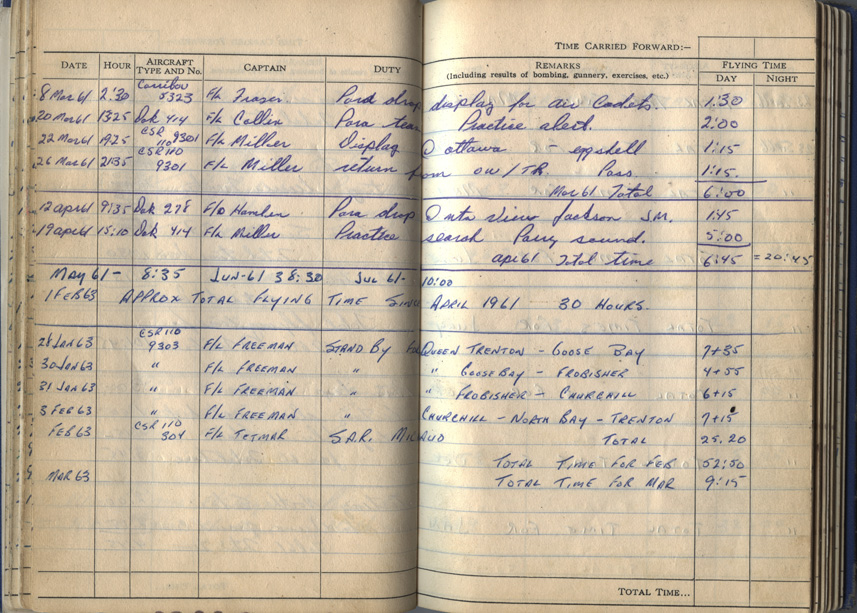 TIME CARRIED FORWARD:–
DATE HOUR AIRCRAFT TYPE AND No. CAPTAIN DUTY REMARKS (Including results of bombing, gunnery, exercises, etc.) FLYING TIME
DAY NIGHT
8 Mar 61 2:30 Caribou 5323 F/L Fraser. Para drop display for air Cadets. 1:30
20 Mar 61 1325 Dak 414 F/L Collin Para team Practice alert. 2:00
22 Mar 61 1925 CSR 110 9301 F/L Miller Display @ ottawa - eggshell 1:15
26 Mar 61 2135 CSR 110 9301 F/L Miller return from ow/TR. Pass. 1:15.
Mar 61 Total 6:00
12 april 61 9:35 Dak 278 F/O Hamlin Para drop @ mtn view Jackson S.M. 1:45
19 april 61 15:10 Dak 414 F/L Miller Practice search Parry sound. 5:00
april 61 Total time 6:45 = 20:45
MAY 61 - 8:35 JUN-61 38:30 JUL 61- 10:00
1 FEB 63 APPROX TOTAL FLYING TIME SINCE APRIL 1961 30 HOURS.
28 JAN 63 CSR 110 9303 F/L FREEMAN STAND BY FOR QUEEN TRENTON - GOOSE BAY 7+35
30 JAN 63 " F/L FREEMAN " " GOOSE BAY - FROBISHER 4+55
31 JAN 63 " F/L FREEMAN " " FROBISHER - CHURCHILL 6+15
3 FEB 63 " F/L FREEMAN " CHURCHILL - NORTH BAY - TRENTON 7+15
FEB 63 CSR 110 304 F/L TETMAR S.A.R. TOTAL 25.20
TOTAL TIME FOR FEB 52:50
MAR 63 TOTAL TIME FOR MAR 9:15
TOTAL TIME...